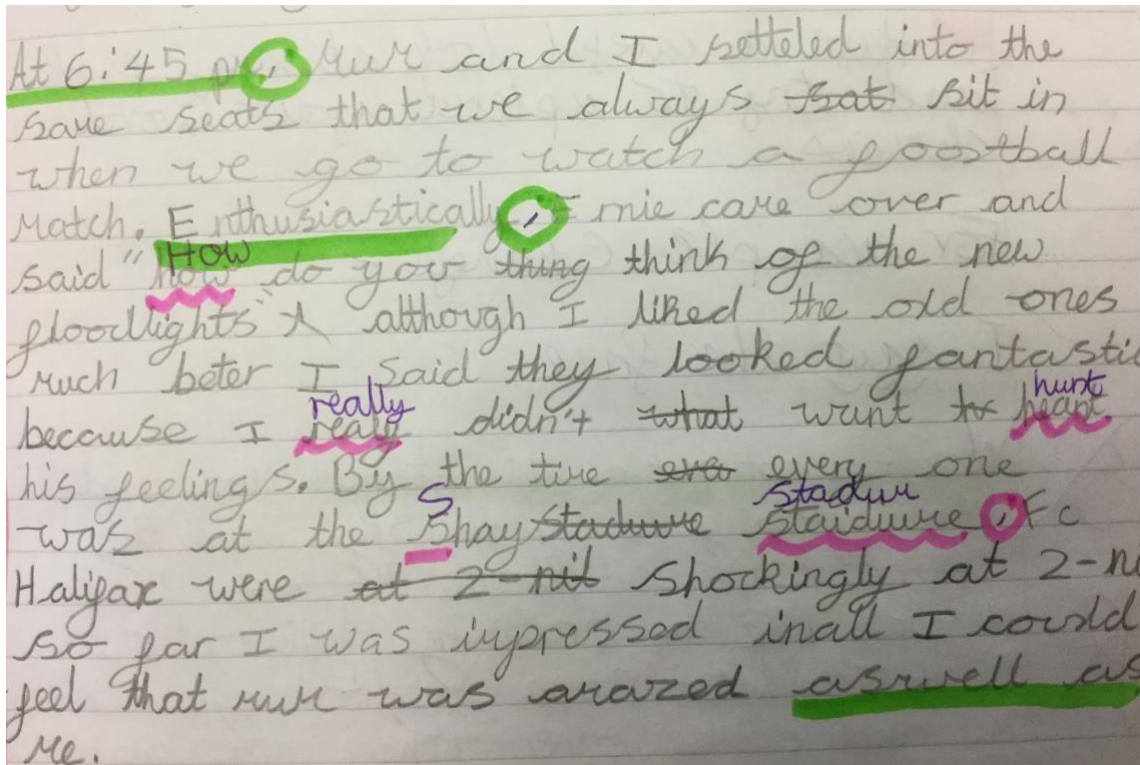 At 6:45 pm, Mum and I setteled into the
same seats that we always sat sit in
when we go to watch a foostball
match. Enthusiastically, Ernie came over and
said "how How do you thing think of the new
floodlights" although I liked the old ones
much beter I said they looked fantastic
because I realy really didn't what want to heart hurt
his feelings. By the time eve every one
was at the Shay S stadume staidume stadum, Fc
Halifax were at 2-nil shockingly at 2-n
so far I was impressed inall I could
feel that mum was amazed aswell as
me.